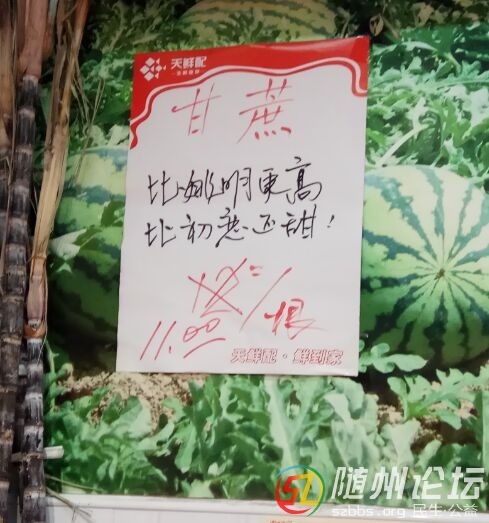 天鲜配
甘蔗
比姚明更高
比初恋还甜！
11.00/恨
天鲜配·鲜到家
随州论坛
szbbs.org 民生 公益